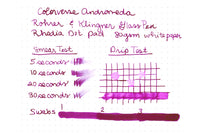 Colorverse Andromeda
Rohrer & Klingner Glass Pen
Rhodia Dot Pad 80gsm white paper
Smear Test
Drip Test
5 seconds
10 seconds
20 seconds
30 seconds
Swabs
1
2
3